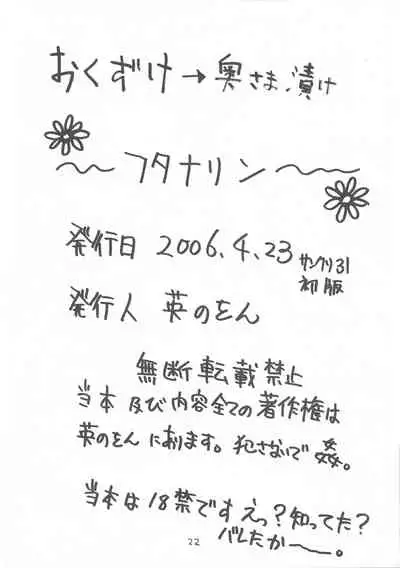 おくずけ→奥さま漬け
〜フタナリン〜
発行日 2006.4.23 サンクリ31
初版
発行人 英のをん
無断転載禁止
当本及び内容全ての著作権は
英のをんにあります。犯さないで姦。
当本は18禁ですえっ?知ってた?
バレたかー。
22